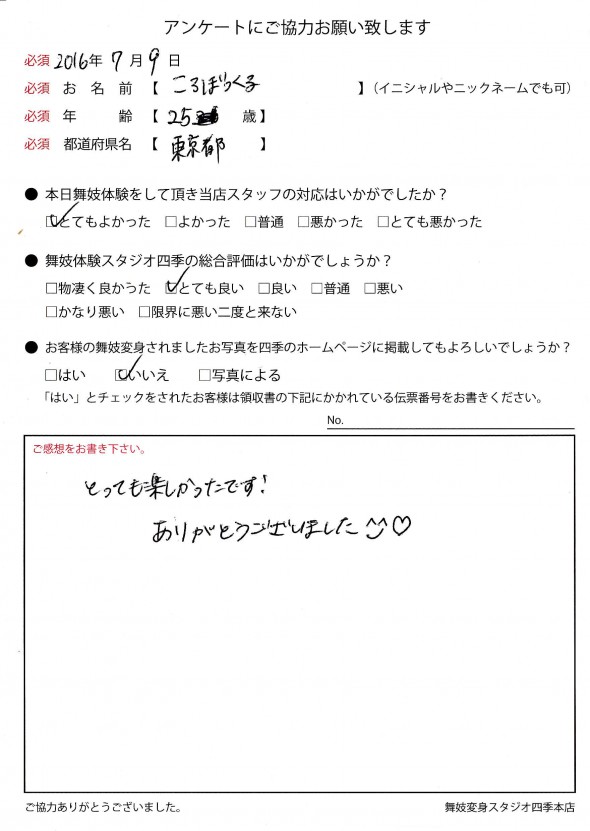 アンケートにご協力お願い致します
必須 2016年 7月 9日
必須 お 名 前 【 ころぼっくる 】（イニシャルやニックネームでも可）
必須 年 齢 【 25 歳】
必須 都道府県名 【 東京都 】
● 本日舞妓体験をして頂き当店スタッフの対応はいかがでしたか？
☑とてもよかった □よかった □普通 □悪かった □とても悪かった
● 舞妓体験スタジオ四季の総合評価はいかがでしょうか？
□物凄く良かった ☑とても良い □良い □普通 □悪い
□かなり悪い □限界に悪い二度と来ない
● お客様の舞妓変身されましたお写真を四季のホームページに掲載してもよろしいでしょうか？
□はい ☑いいえ □写真による
「はい」とチェックをされたお客様は領収書の下記にかかれている伝票番号をお書きください。
No.
ご感想をお書き下さい。
とっても楽しかったです!
ありがとうございました ^^♡
ご協力ありがとうございました。
舞妓変身スタジオ四季本店